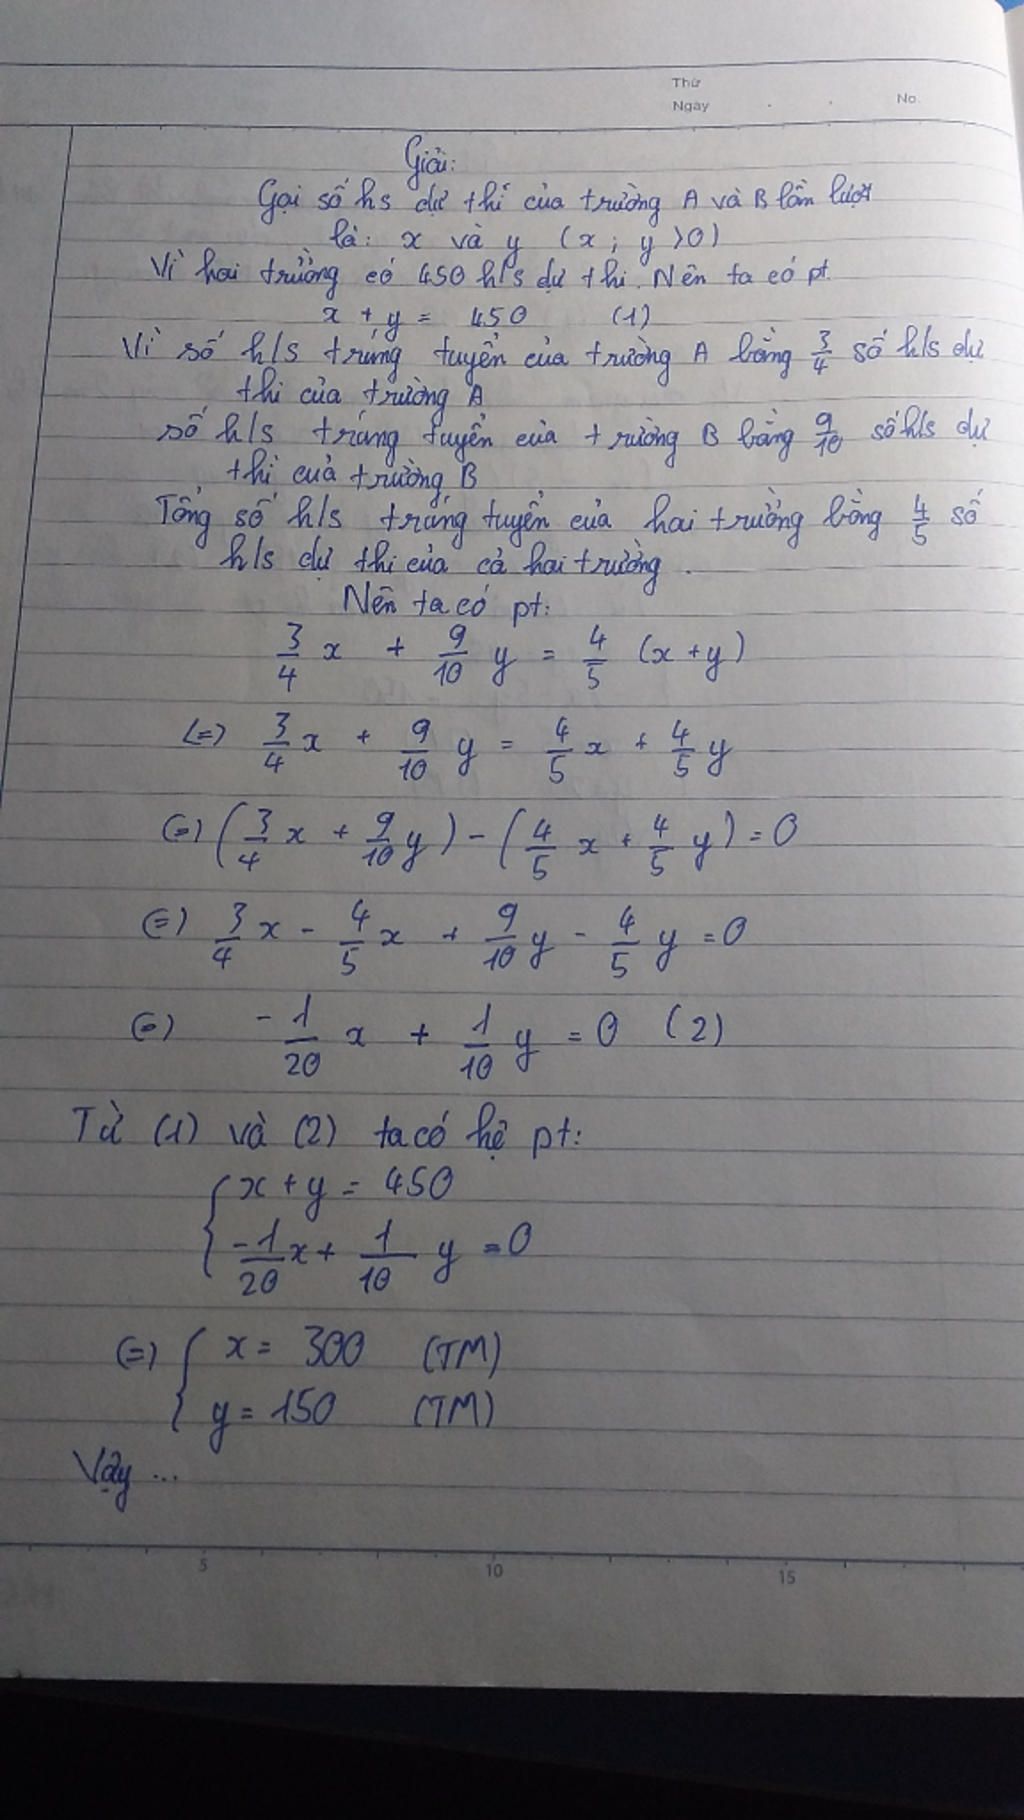 Thứ
Ngày
No.
Giải:
Gọi số hs dự thi của trường A và B lần lượt
là: x và y (x; y >0)
Vì hai trường có 450 h/s dự thi. Nên ta có pt.
x + y = 450 (1)
Vì số h/s trúng tuyển của trường A bằng 3/4 số h/s dự
thi của trường A
số h/s trúng tuyển của trường B bằng 9/10 số h/s dự
thi của trường B
Tổng số h/s trúng tuyển của hai trường bằng 4/5 số
h/s dự thi của cả hai trường.
Nên ta có pt:
3/4 x + 9/10 y = 4/5 (x + y)
(=) 3/4 x + 9/10 y = 4/5 x + 4/5 y
(=) (3/4 x + 9/10 y) - (4/5 x + 4/5 y) = 0
(=) 3/4 x - 4/5 x + 9/10 y - 4/5 y = 0
(=) -1/20 x + 1/10 y = 0 (2)
Từ (1) và (2) ta có hệ pt:
{ x + y = 450
-1/20 x + 1/10 y = 0
(=) { x = 300 (TM)
y = 150 (TM)
Vậy ...
5 10 15